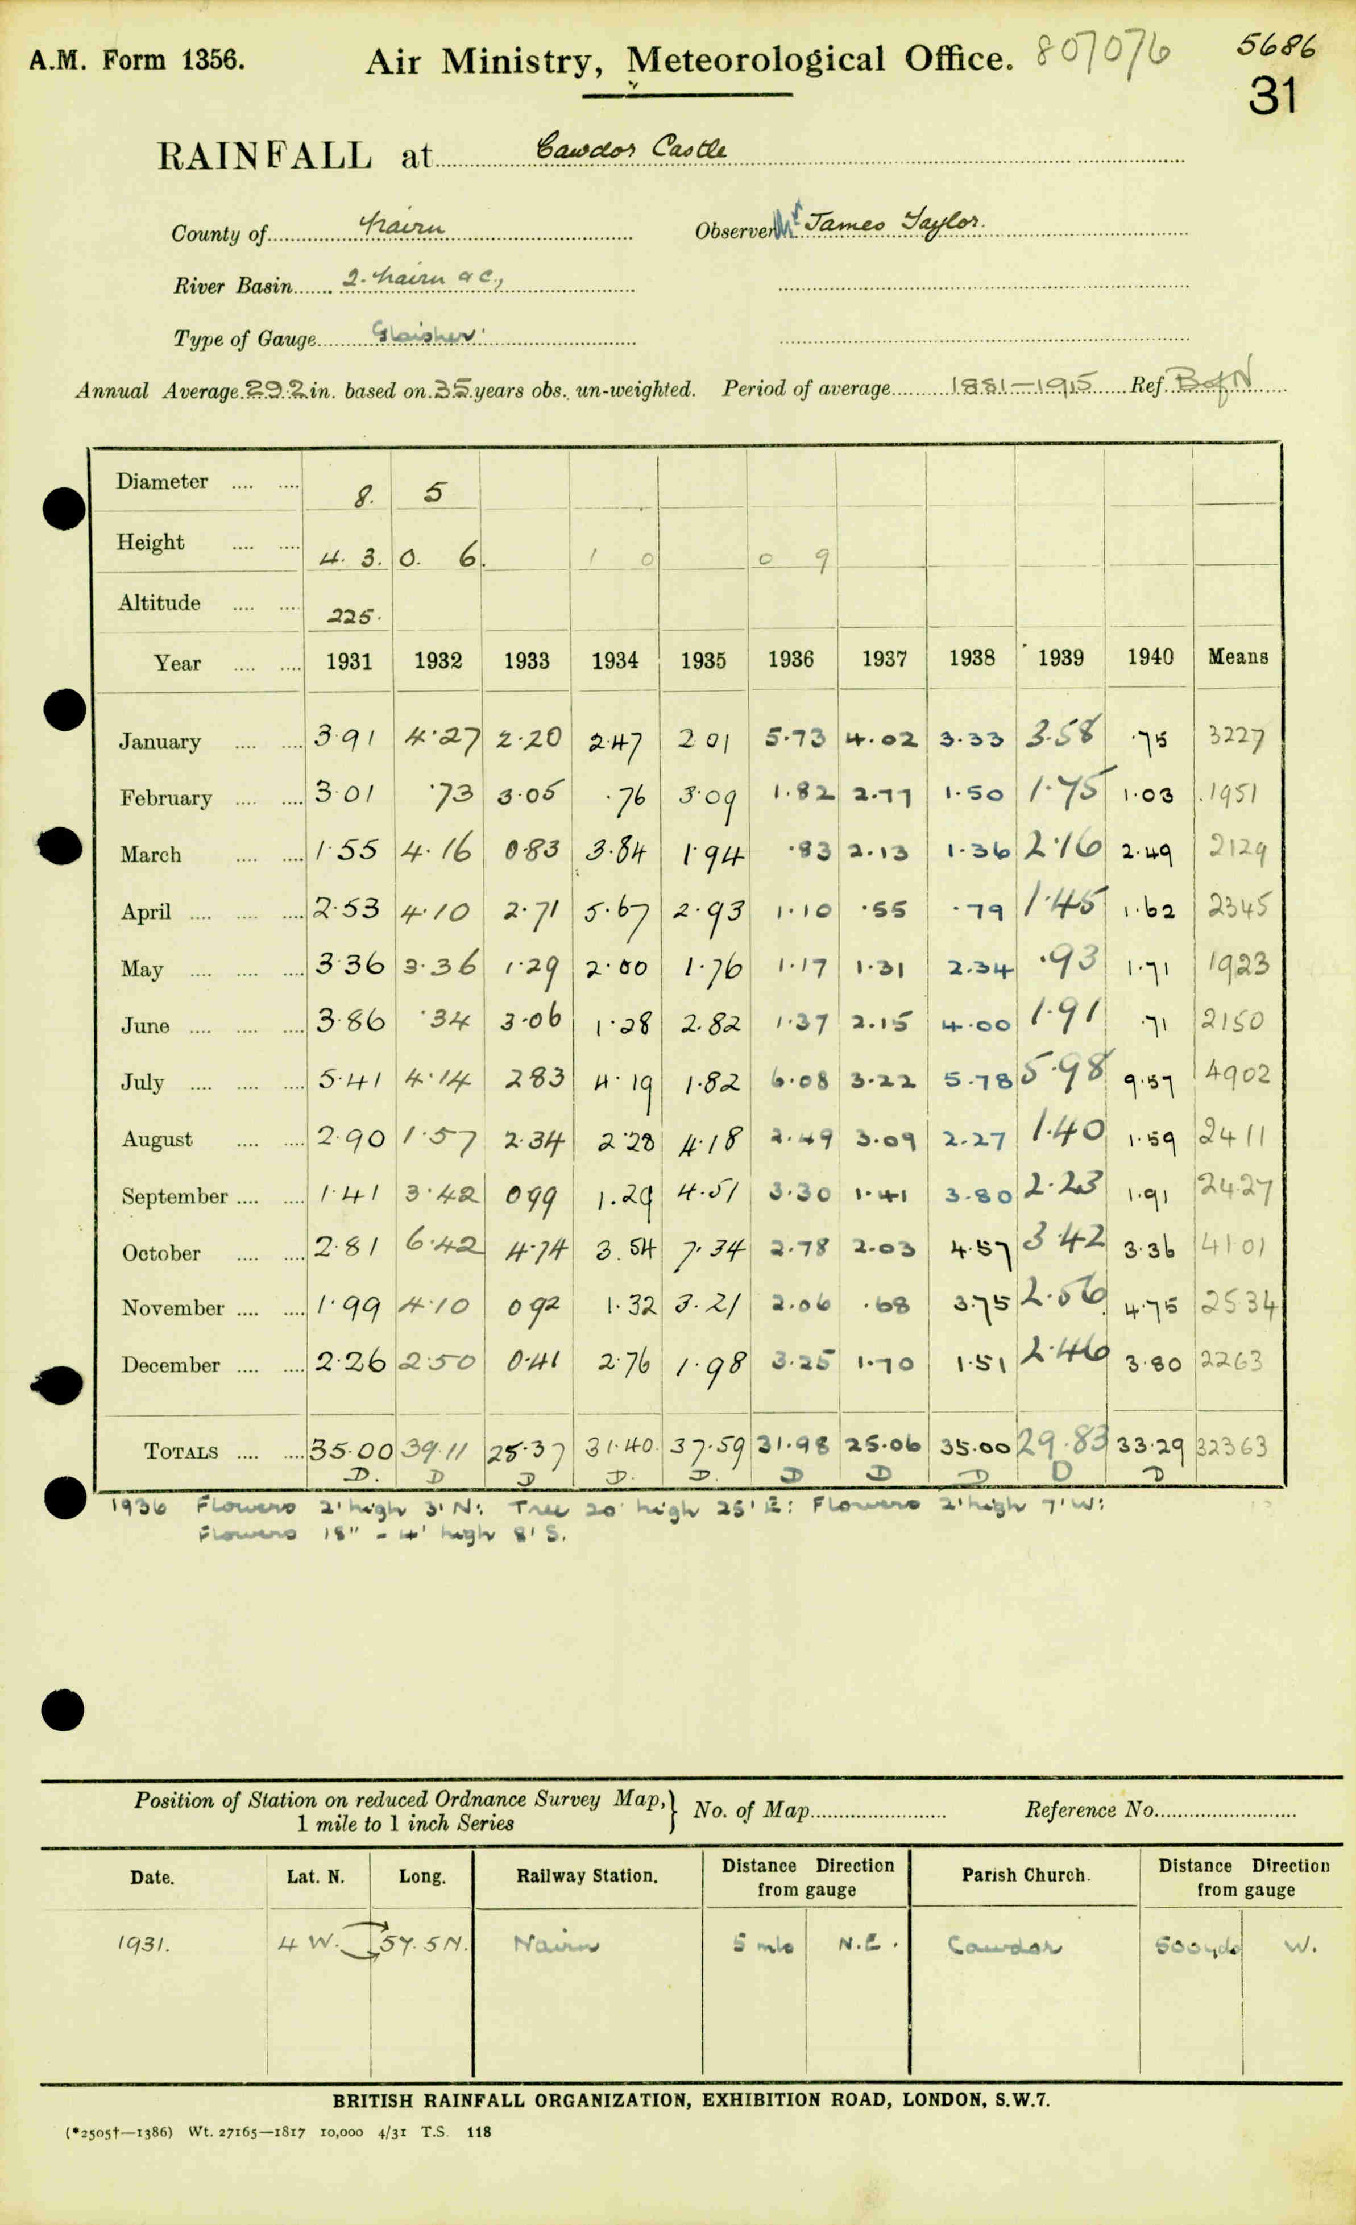 A.M. Form 1356. Air Ministry, Meteorological Office. 807076 5686
31
RAINFALL at Cawdor Castle
County of Nairn Observer Mr James Taylor.
River Basin 2. Nairn &c,
Type of Gauge Glaisher
Annual Average 29.2 in. based on 35 years obs. un-weighted. Period of average 1881-1915 Ref. B of N
Diameter 8. 5
Height 4. 3. 0. 6. 1 0 0 9
Altitude 225.
Year 1931 1932 1933 1934 1935 1936 1937 1938 1939 1940 Means
January 3.91 4.27 2.20 2.47 2 01 5.73 4.02 3.33 3.58 .75 3227
February 3.01 .73 3.05 .76 3.09 1.82 2.77 1.50 1.75 1.03 1951
March 1.55 4.16 0.83 3.84 1.94 .83 2.13 1.36 2.16 2.49 2129
April 2.53 4.10 2.71 5.67 2.93 1.10 .55 .79 1.45 1.62 2345
May 3.36 3.36 1.29 2.00 1.76 1.17 1.31 2.34 .93 1.71 1923
June 3.86 .34 3.06 1.28 2.82 1.37 2.15 4.00 1.91 .71 2150
July 5.41 4.14 2 83 4.19 1.82 6.08 3.22 5.78 5.98 9.57 4902
August 2.90 1.57 2.34 2.28 4.18 2.49 3.09 2.27 1.40 1.59 2411
September 1.41 3.42 0 99 1.29 4.51 3.30 1.41 3.80 2.23 1.91 2427
October 2.81 6.42 4.74 3.54 7.34 2.78 2.03 4.57 3 42 3.36 4101
November 1.99 4.10 0 92 1.32 3.21 2.06 .68 3.75 2.56 4.75 2534
December 2.26 2.50 0.41 2.76 1.98 3.25 1.70 1.51 2.46 3.80 2263
TOTALS 35.00 39.11 25.37 31.40 37.59 31.98 25.06 35.00 29.83 33.29 32363
D. D D D. D. D D D D D
1936 Flowers 2' high 3' N: Tree 20' high 25' E: Flowers 2' high 7' W:
Flowers 18" - 4' high 8' S.
Position of Station on reduced Ordnance Survey Map, } No. of Map Reference No.
1 mile to 1 inch Series
Date. Lat. N. Long. Railway Station. Distance Direction from gauge Parish Church. Distance Direction from gauge
1931. 4 W. 57.5 N. Nairn 5 mls N.E. Cawdor 500 yds W.
BRITISH RAINFALL ORGANIZATION, EXHIBITION ROAD, LONDON, S.W.7.
(*2505†—1386) Wt. 27165—1817 10,000 4/31 T.S. 118